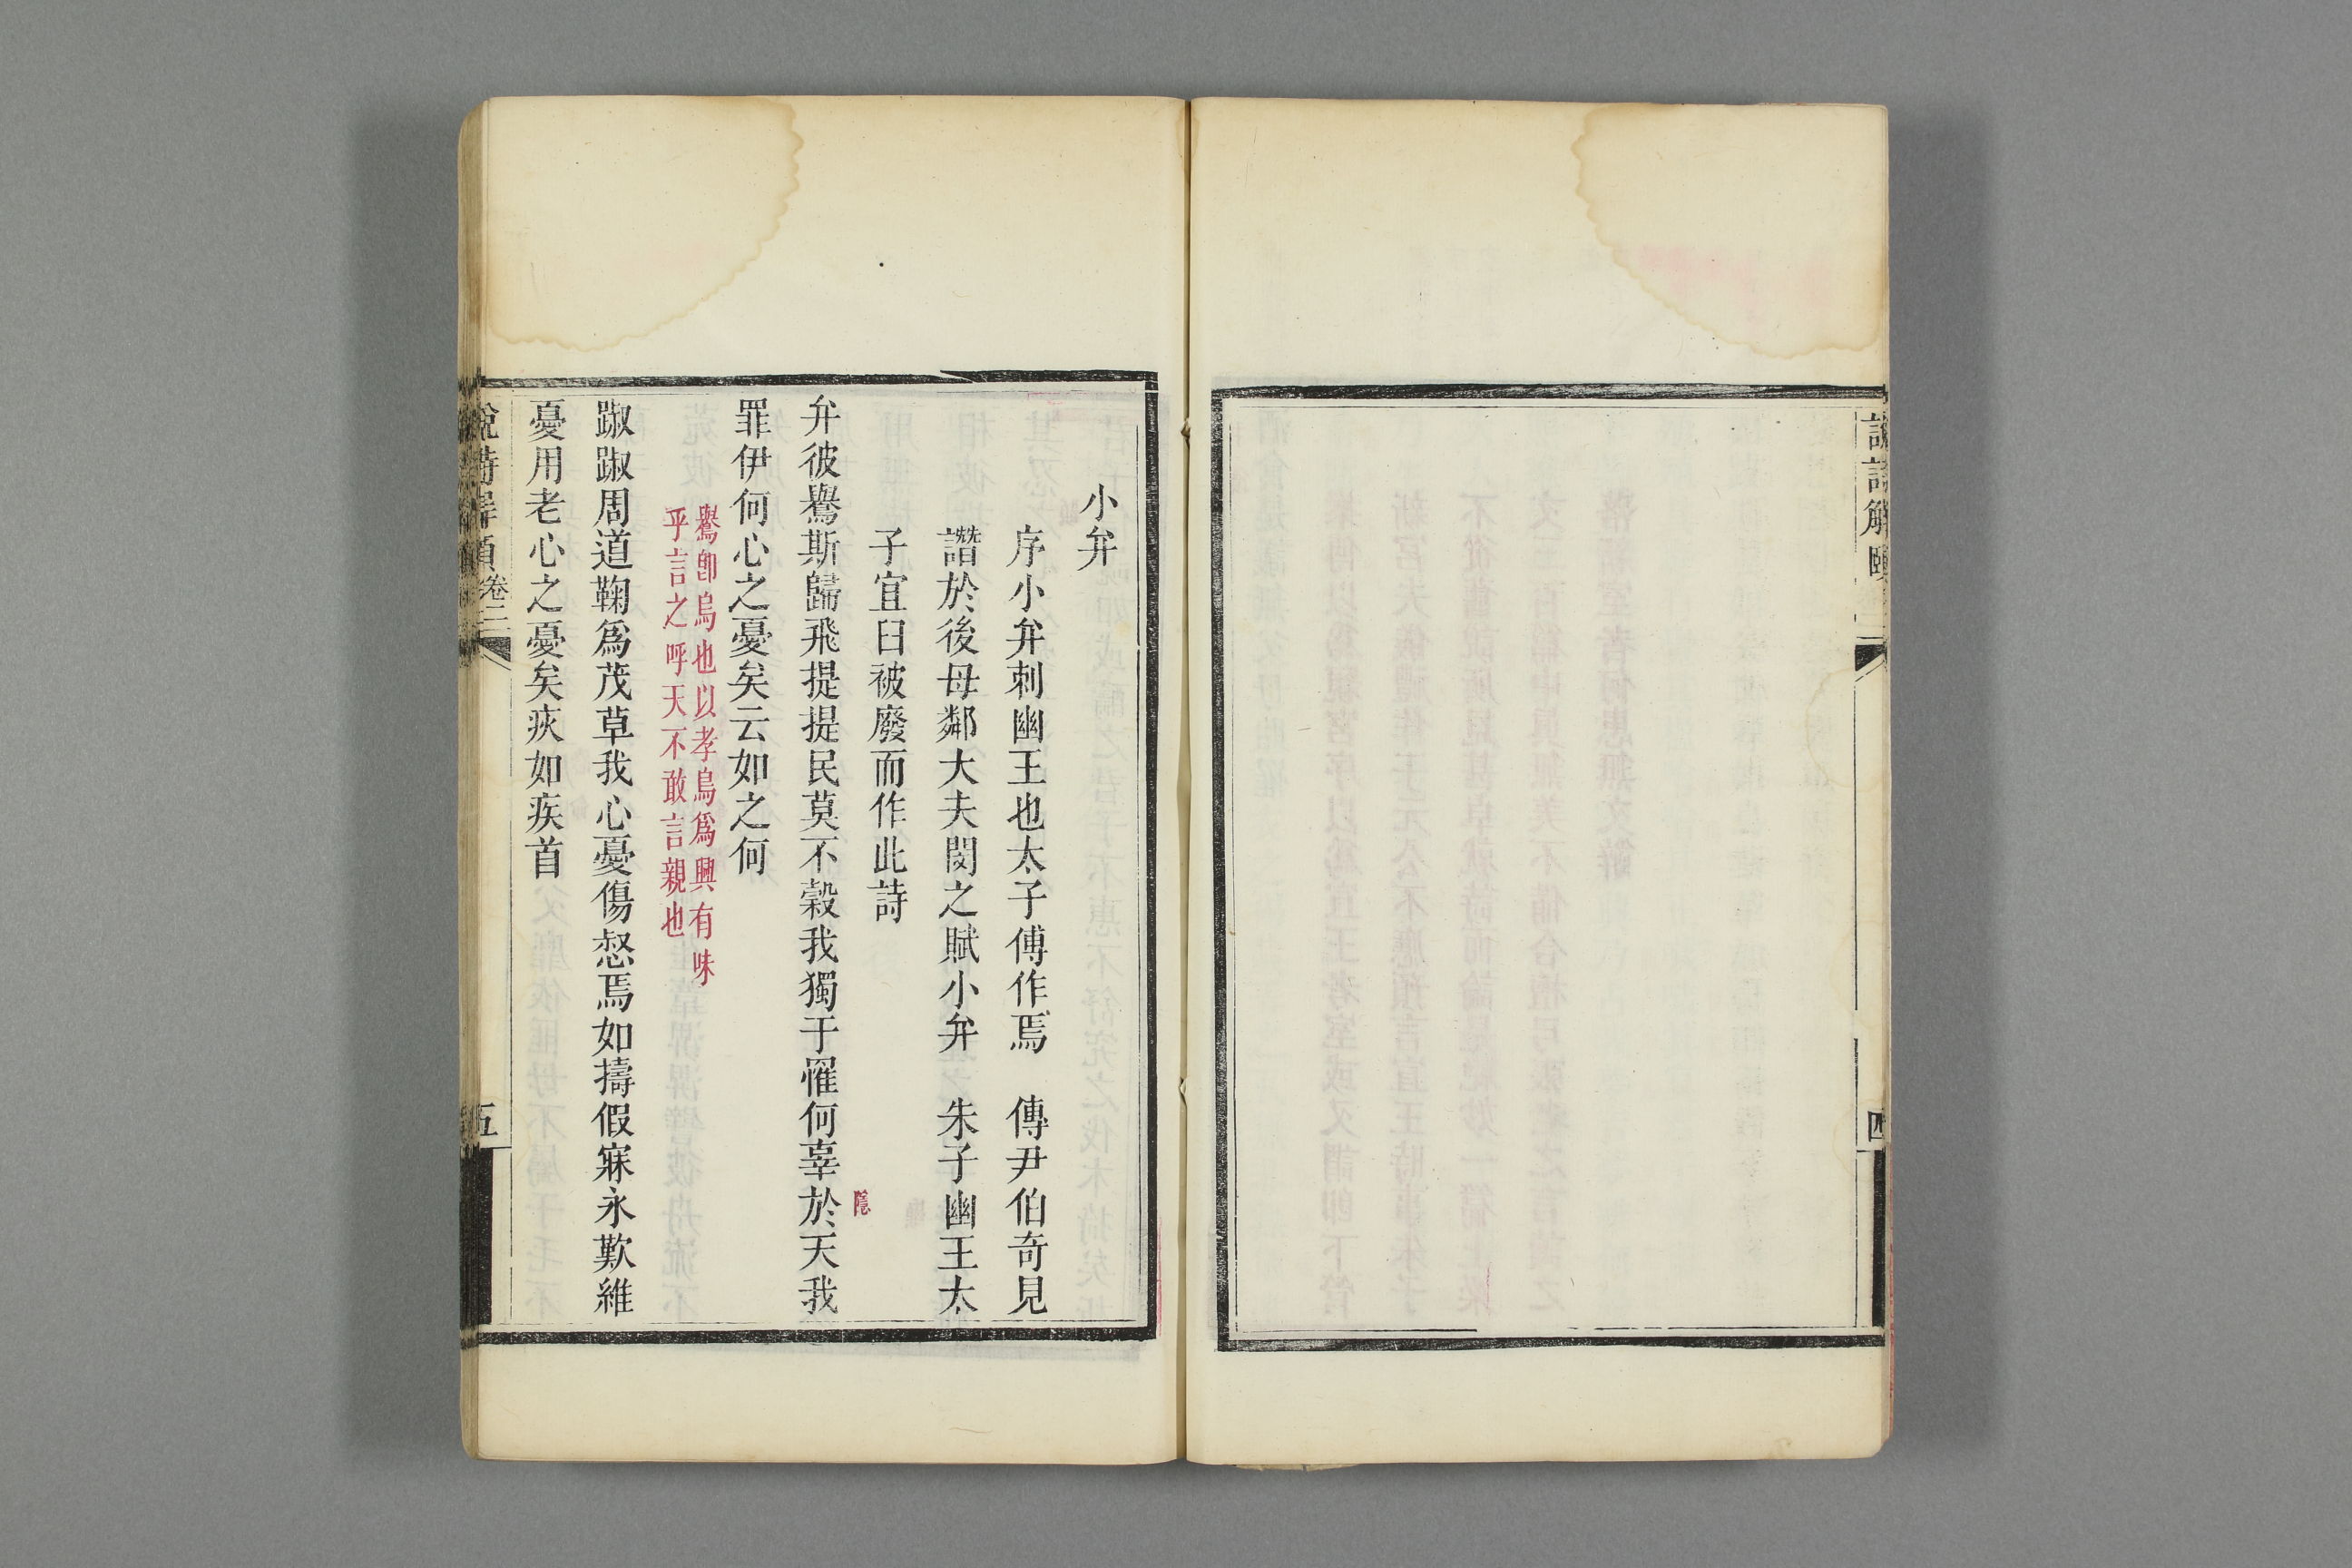 說詩解頤
四
小弁
序小弁刺幽王也太子傅作焉　傳尹伯奇見
譖於後母鄰大夫閔之賦小弁　朱子幽王太
子宜臼被廢而作此詩
弁彼鸒斯歸飛提提民莫不穀我獨于罹何辜於天我
隱
罪伊何心之憂矣云如之何
鸒卽烏也以孝烏爲興有味
乎言之呼天不敢言親也
踧踧周道鞠爲茂草我心憂傷惄焉如擣假寐永歎維
憂用老心之憂矣疢如疾首
說詩解頤
卷二
五